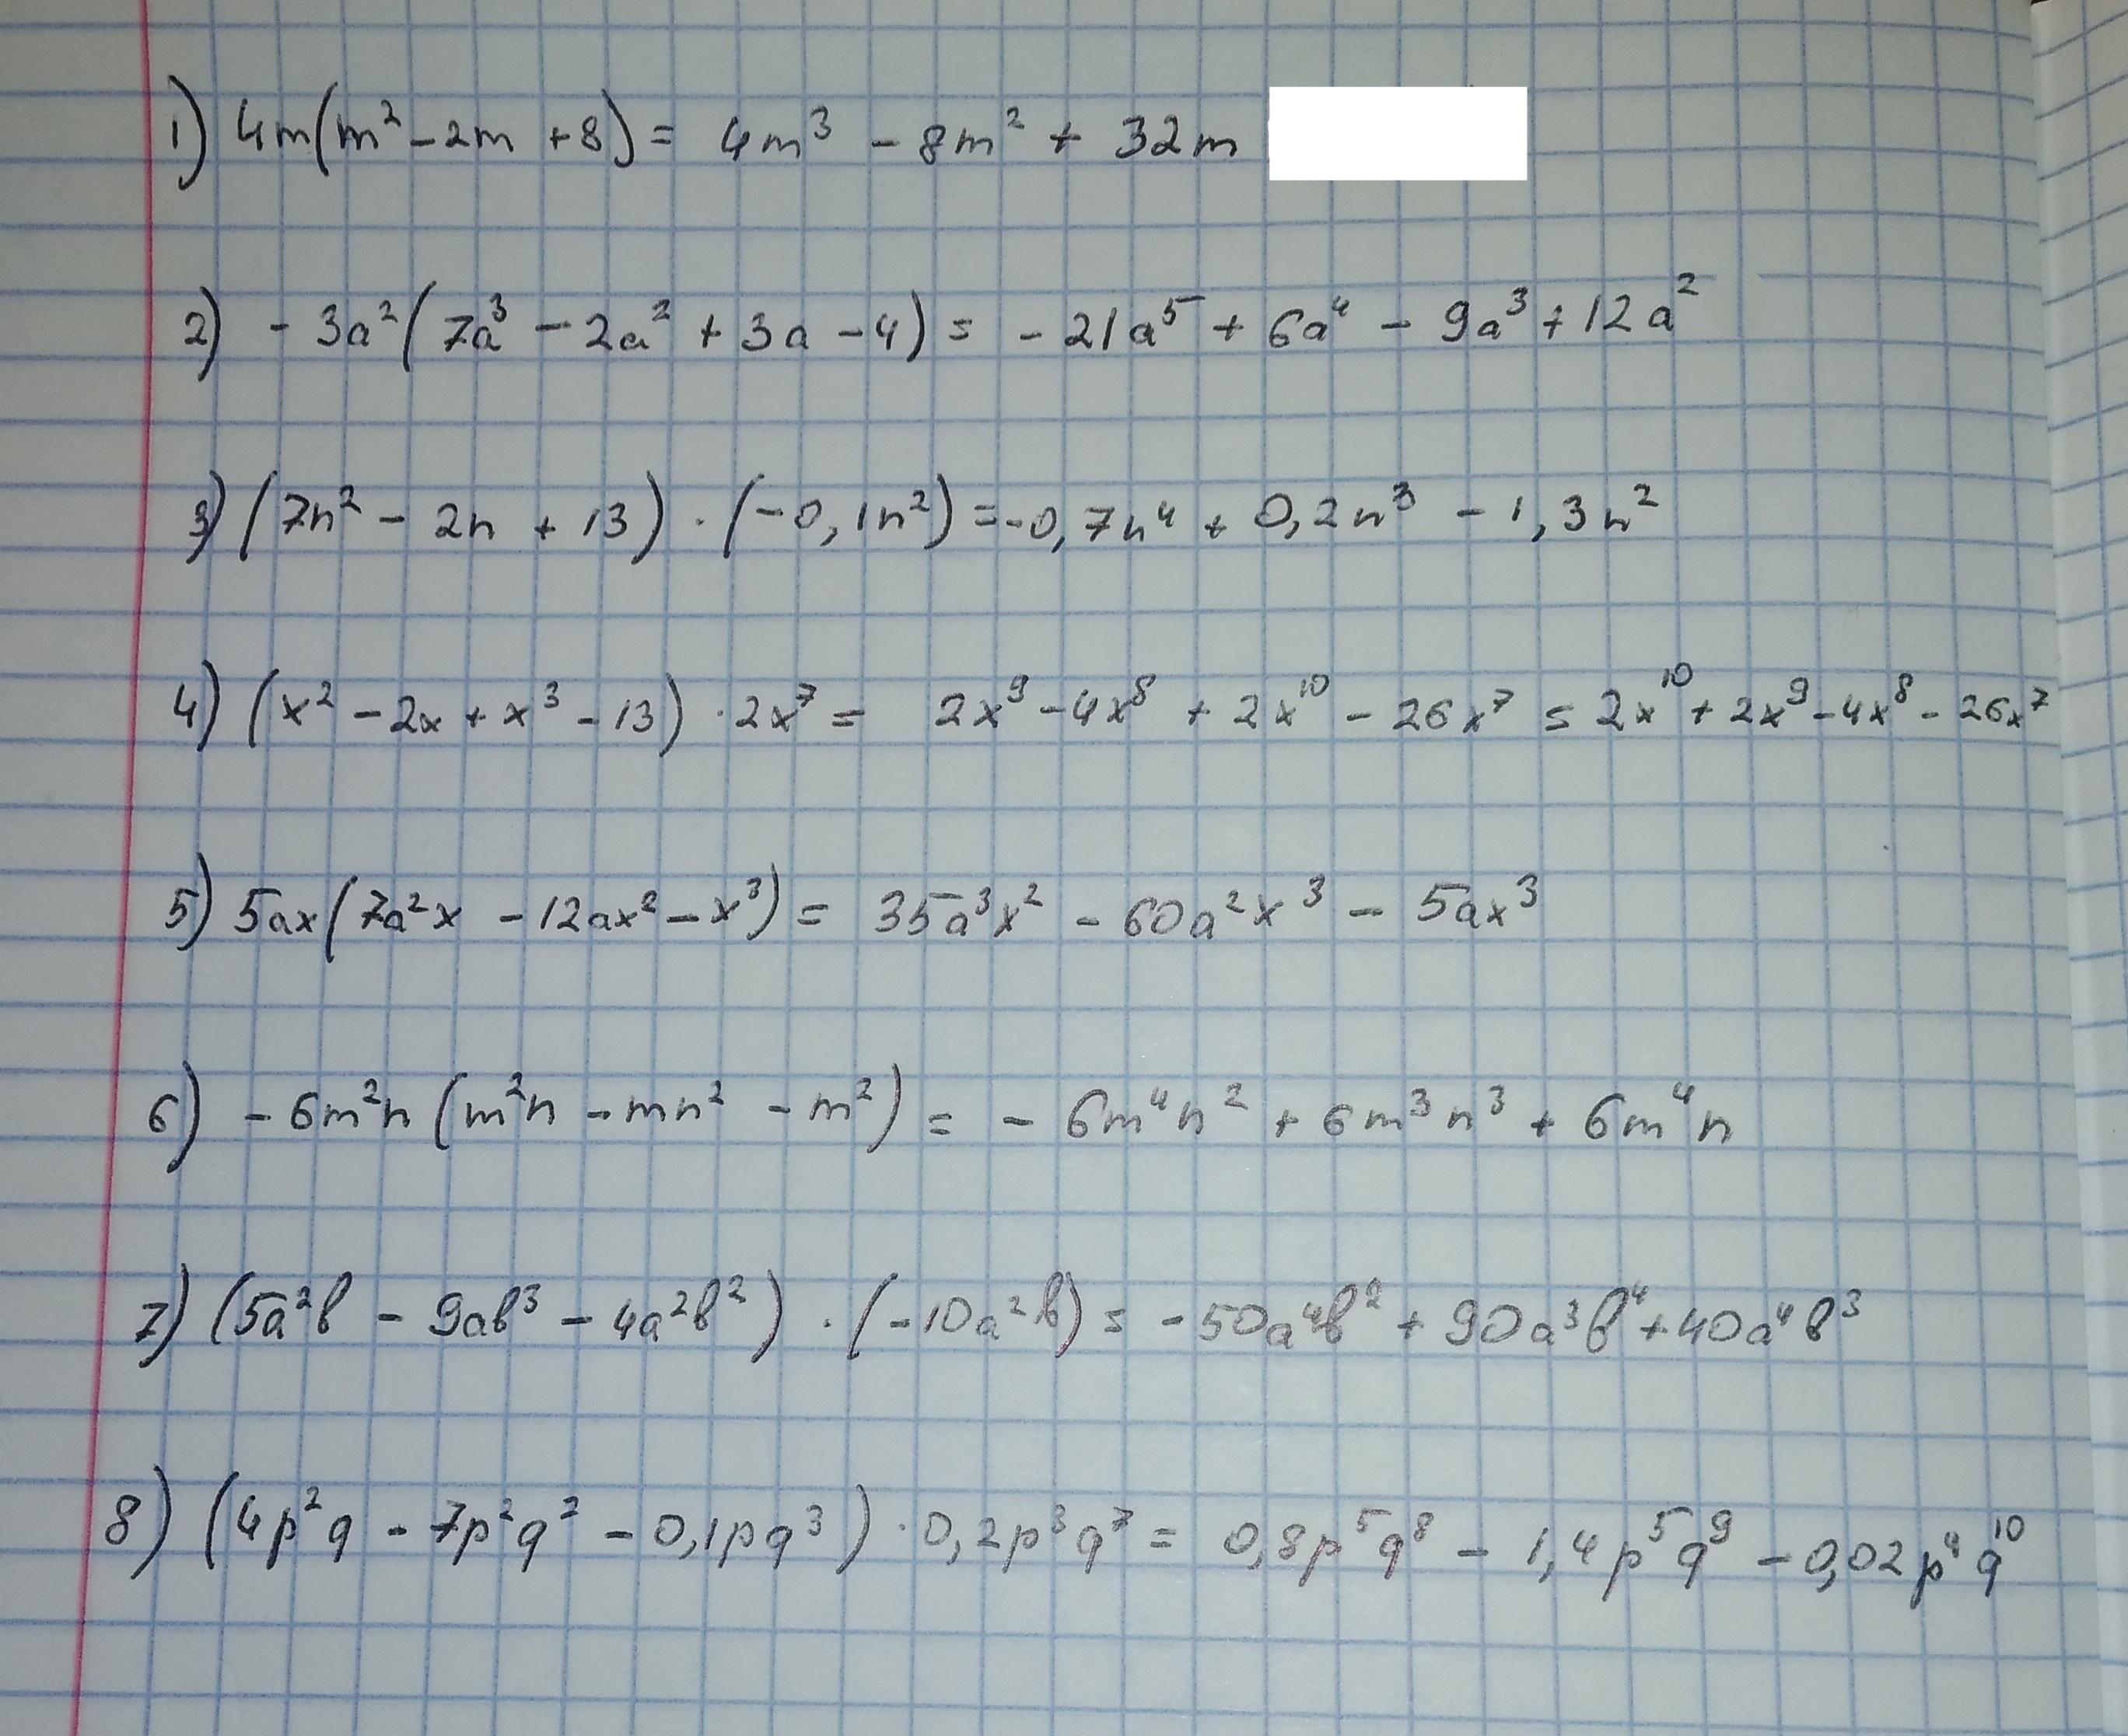 1) 4m(m² - 2m + 8) = 4m³ - 8m² + 32m
2) - 3a² (7a³ - 2a² + 3a - 4) = - 21a⁵ + 6a⁴ - 9a³ + 12a²
3) (7n² - 2n + 13) · (-0,1n²) = -0,7n⁴ + 0,2n³ - 1,3n²
4) (x² - 2x + x³ - 13) · 2x⁷ = 2x⁹ - 4x⁸ + 2x¹⁰ - 26x⁷ = 2x¹⁰ + 2x⁹ - 4x⁸ - 26x⁷
5) 5ax(7a²x - 12ax² - x³) = 35a³x² - 60a²x³ - 5ax³
6) - 6m²n (m²n - mn² - m²) = - 6m⁴n² + 6m³n³ + 6m⁴n
7) (5a²b - 9ab³ - 4a²b²) · (-10a²b) = -50a⁴b² + 90a³b⁴ + 40a⁴b³
8) (4p²q - 7p²q² - 0,1pq³) · 0,2p³q⁷ = 0,8p⁵q⁸ - 1,4p⁵q⁹ - 0,02p⁴q¹⁰